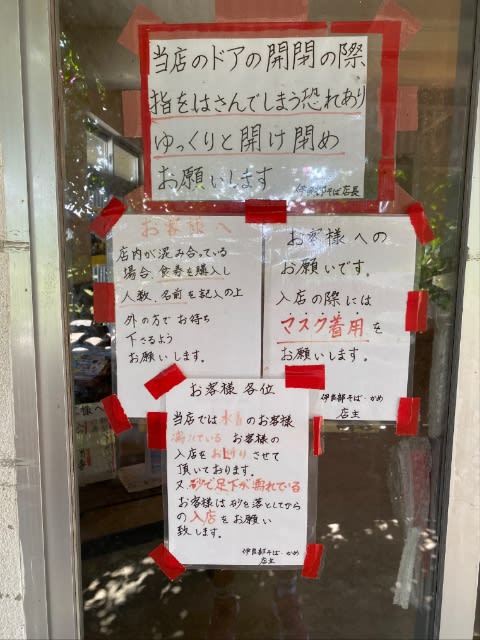 当店のドアの開閉の際
指をはさんでしまう恐れあり
ゆっくりと開け閉め
お願いします
伊良部そば店長
お客様へ
店内が混み合っている
場合、食券を購入し
人数、名前を記入の上
外の方でお待ち
下さるよう
お願いします。
お客様への
お願いです。
入店の際には
マスク着用を
お願いします。
伊良部そば・かめ
店主
お客様各位
当店では水着のお客様
お客様の
入店をお断りさせて
頂いております。
又、砂で足下が汚れている
お客様は砂を落としてから
の入店をお願い
致します。
伊良部そば・かめ
店主